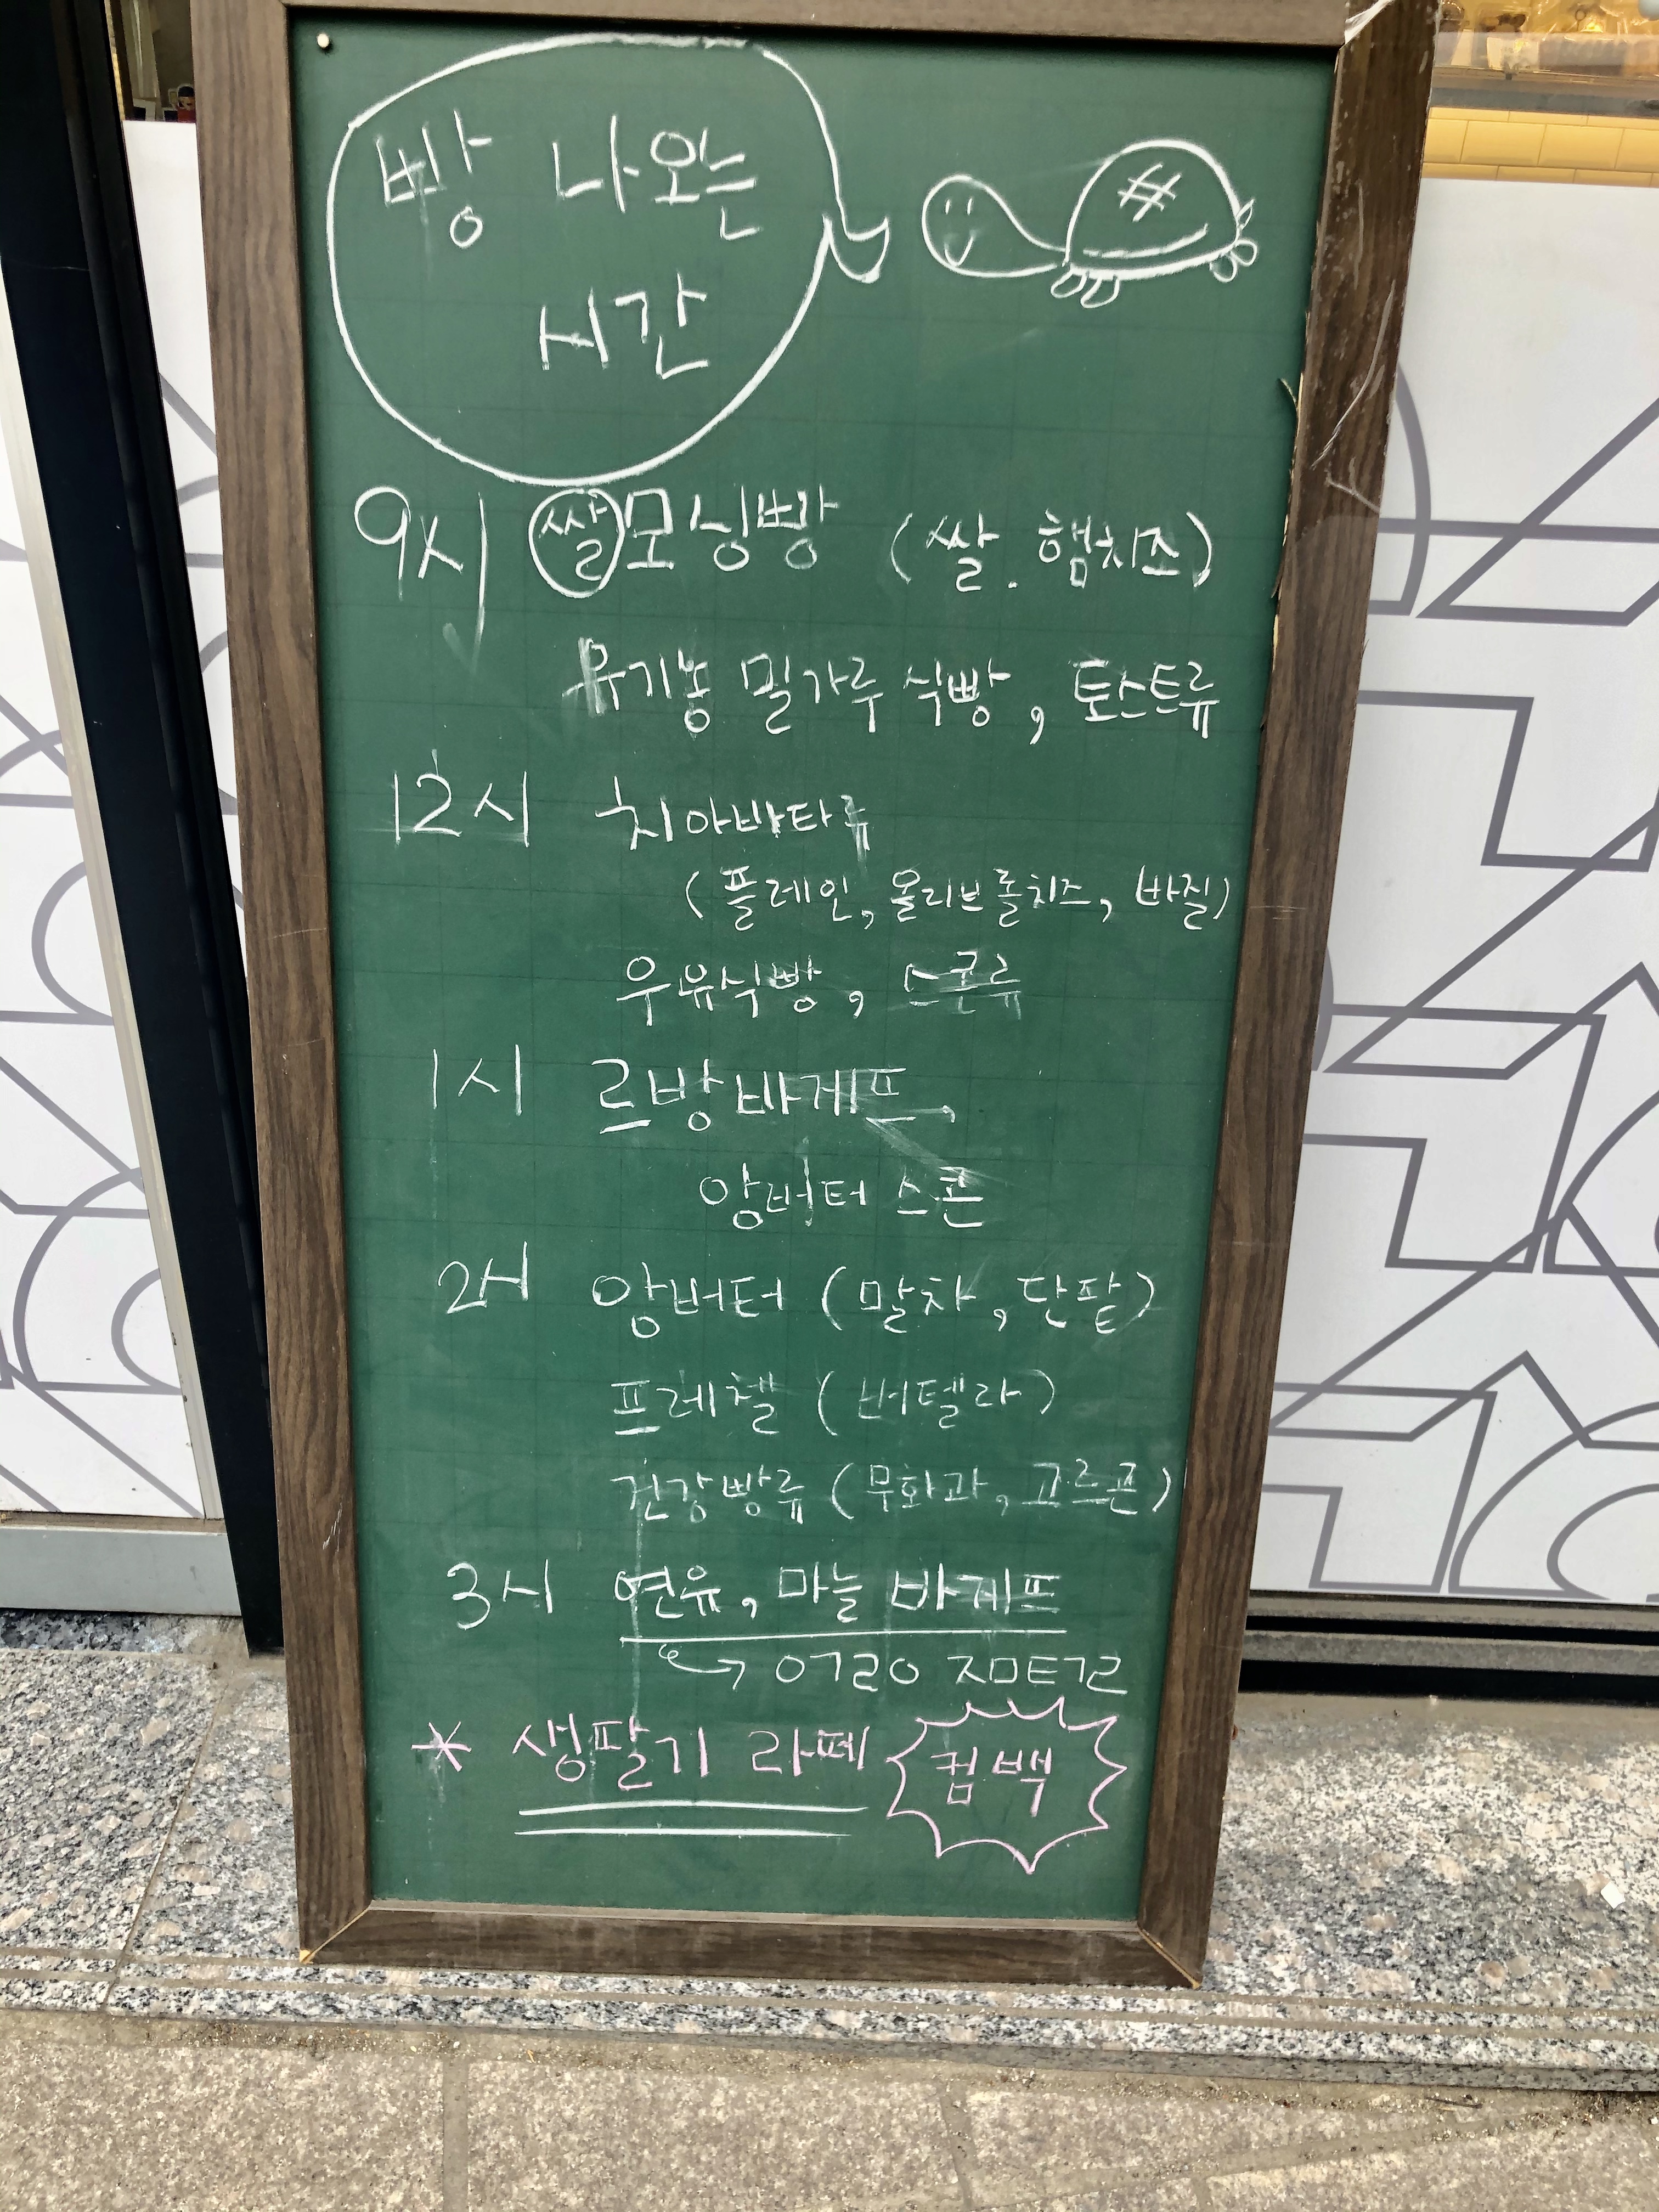 빵 나오는
시간
9시 쌀모닝빵 (쌀. 햄치즈)
유기농 밀가루 식빵, 토스트류
12시 치아바타류
(플레인, 올리브롤치즈, 바질)
우유식빵, 스콘류
1시 르방바게프,
앙버터 스콘
2시 앙버터 (말차, 단팥)
프레첼 (버텔라)
건강빵류 (무화과, 고르곤)
3시 연유, 마늘 바게프
↪
* 생딸기 라페 컴백